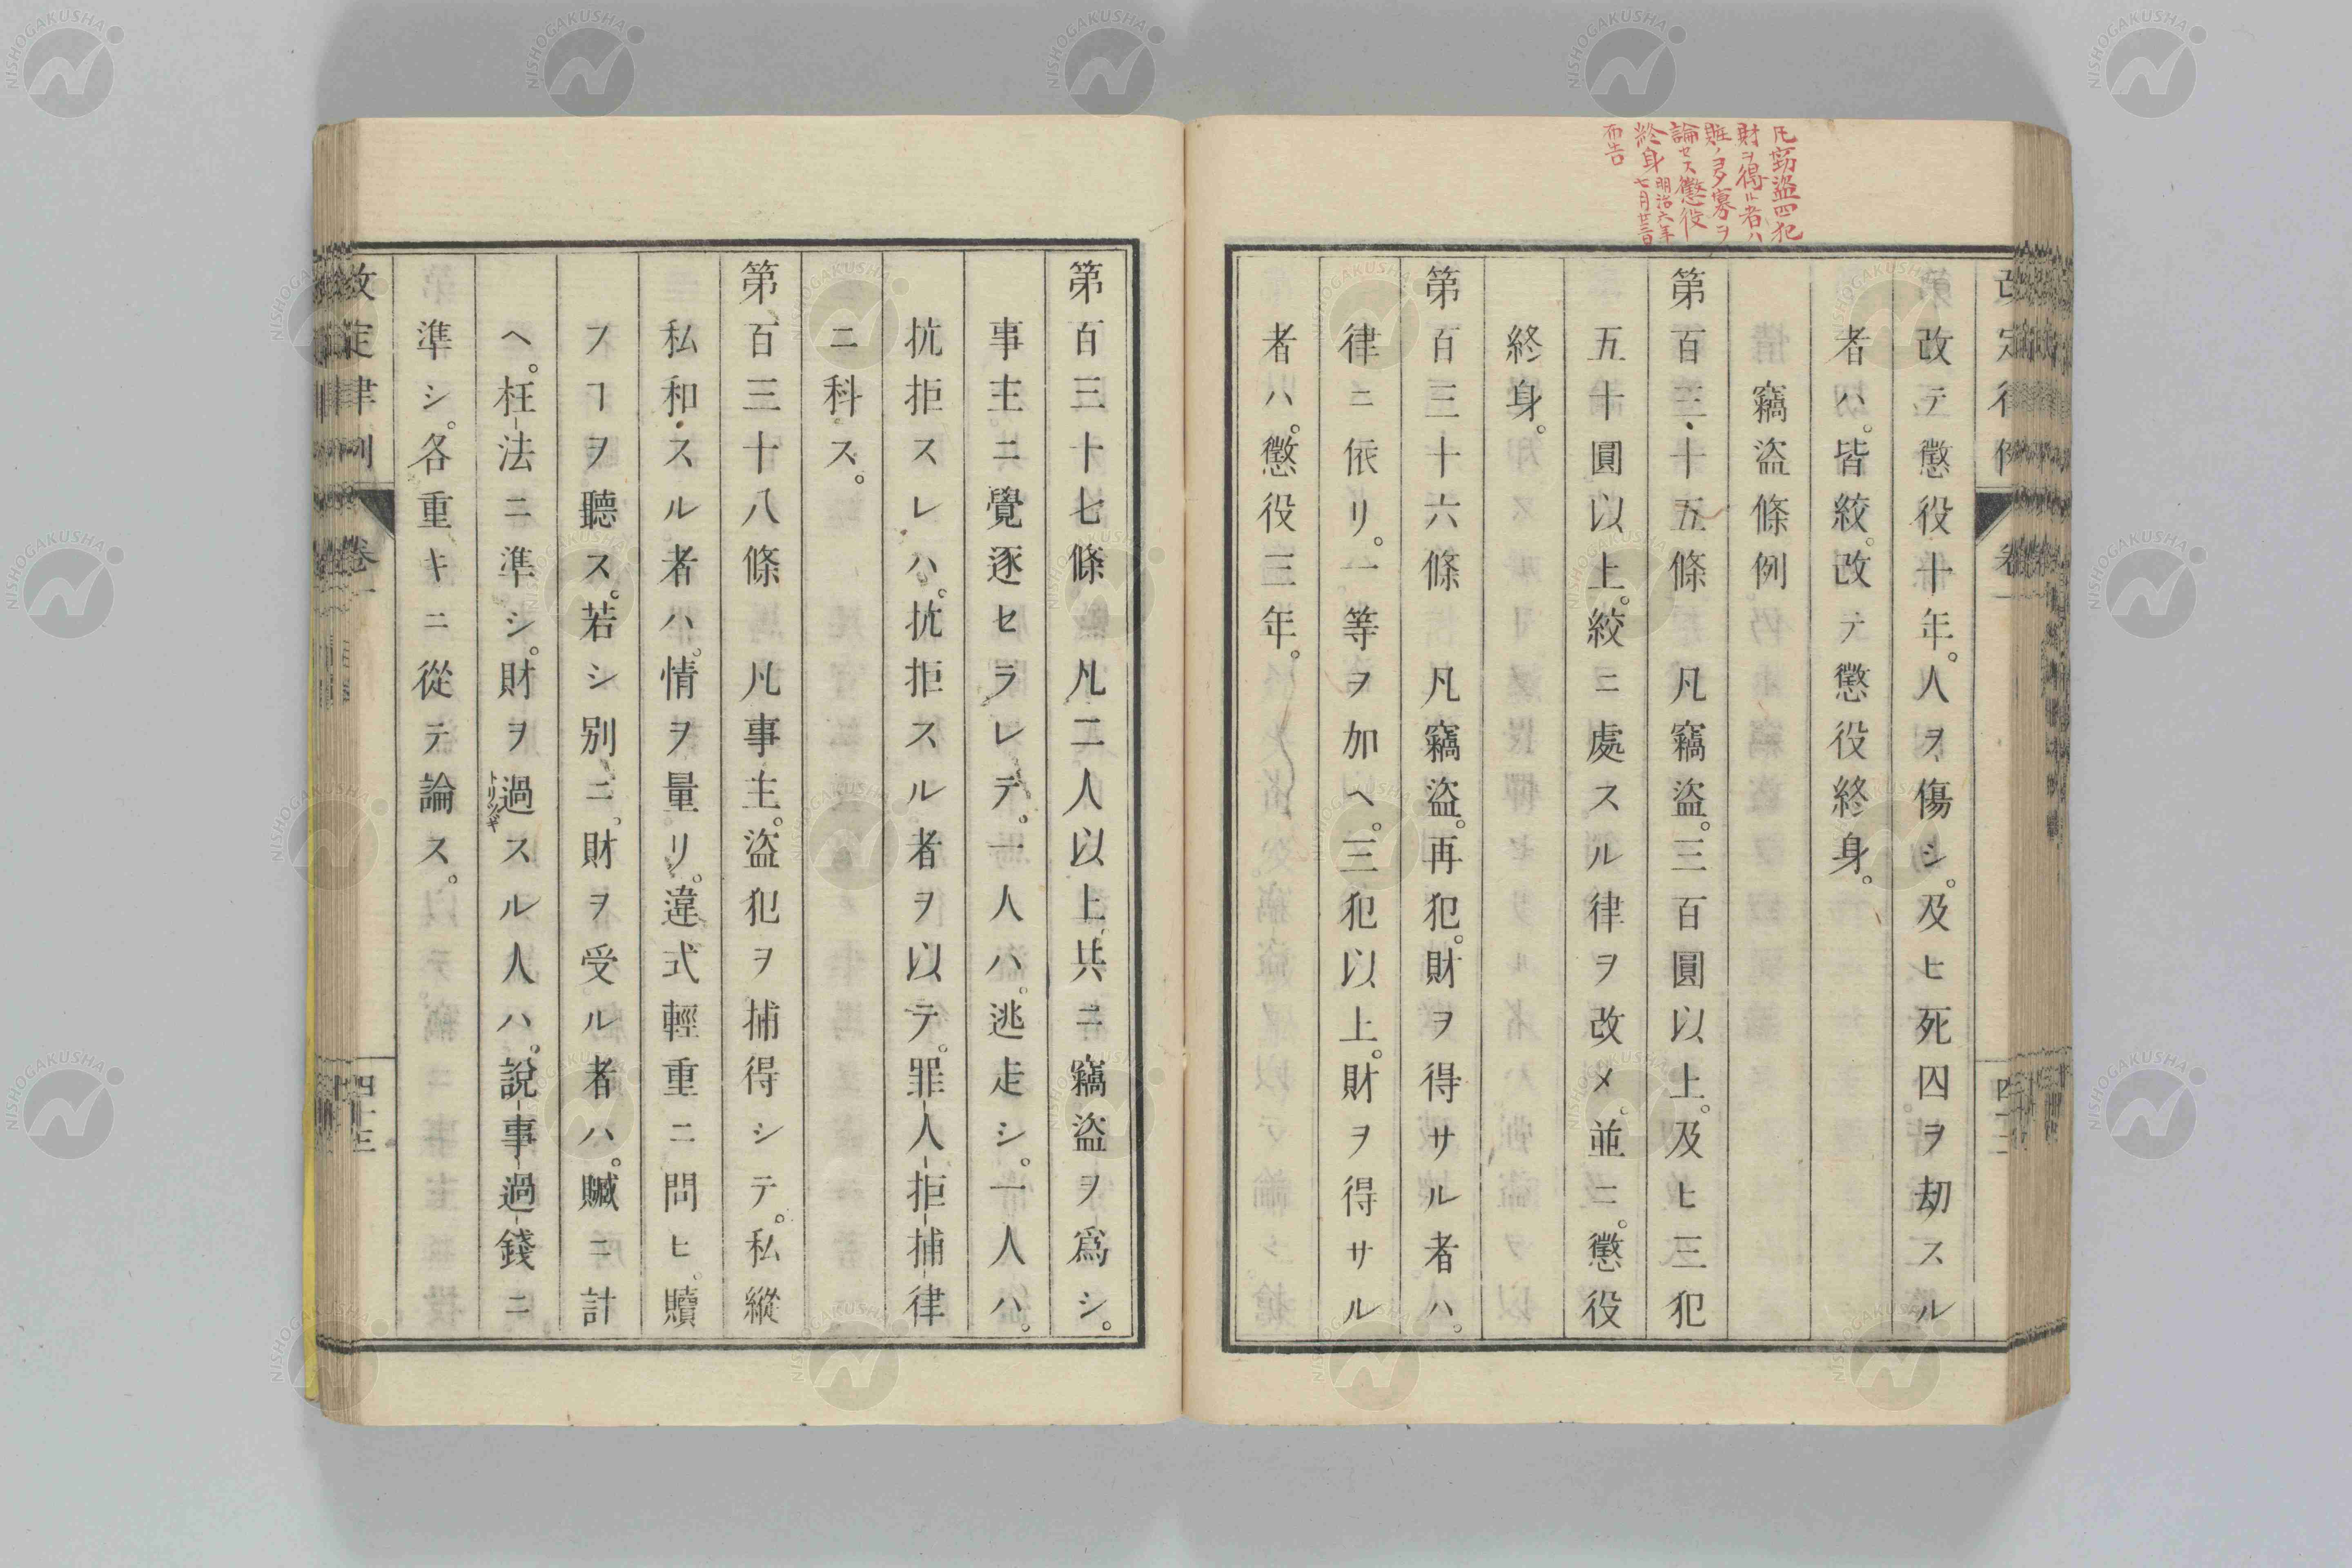 凡窃盗四犯
財ヲ得ル者ハ
贓ノ多寡ヲ
論セス懲役
終身明治六年七月廿三日
布告
改定律例 卷一 四十二
改テ懲役十年。人ヲ傷シ。及ヒ死囚ヲ劫スル
者ハ。皆絞。改テ懲役終身。
竊盗條例
第百三十五條 凡竊盗。三百圓以上。及ヒ三犯
五十圓以上。絞ニ處スル律ヲ改メ。並ニ。懲役
終身。
第百三十六條 凡竊盗。再犯。財ヲ得サル者ハ。
律ニ依リ。一等ヲ加ヘ。三犯以上。財ヲ得サル
者ハ。懲役三年。
第百三十七條 凡二人以上共ニ竊盗ヲ爲シ。
事主ニ覺逐セラレテ。一人ハ。逃走シ。一人ハ。
抗拒スレハ。抗拒スル者ヲ以テ。罪人拒捕律
ニ科ス。
第百三十八條 凡事主。盗犯ヲ捕得シテ。私縱
私和スル者ハ。情ヲ量リ。違式輕重ニ問ヒ。贖
フヿヲ聽ス。若シ別ニ。財ヲ受ル者ハ。贓ニ計
ヘ。枉法ニ準シ。財ヲ過トリツギスル人ハ。說事過錢ニ
準シ。各重キニ從テ論ス。
改定律例 卷一 四十三
NISHOGAKUSHA